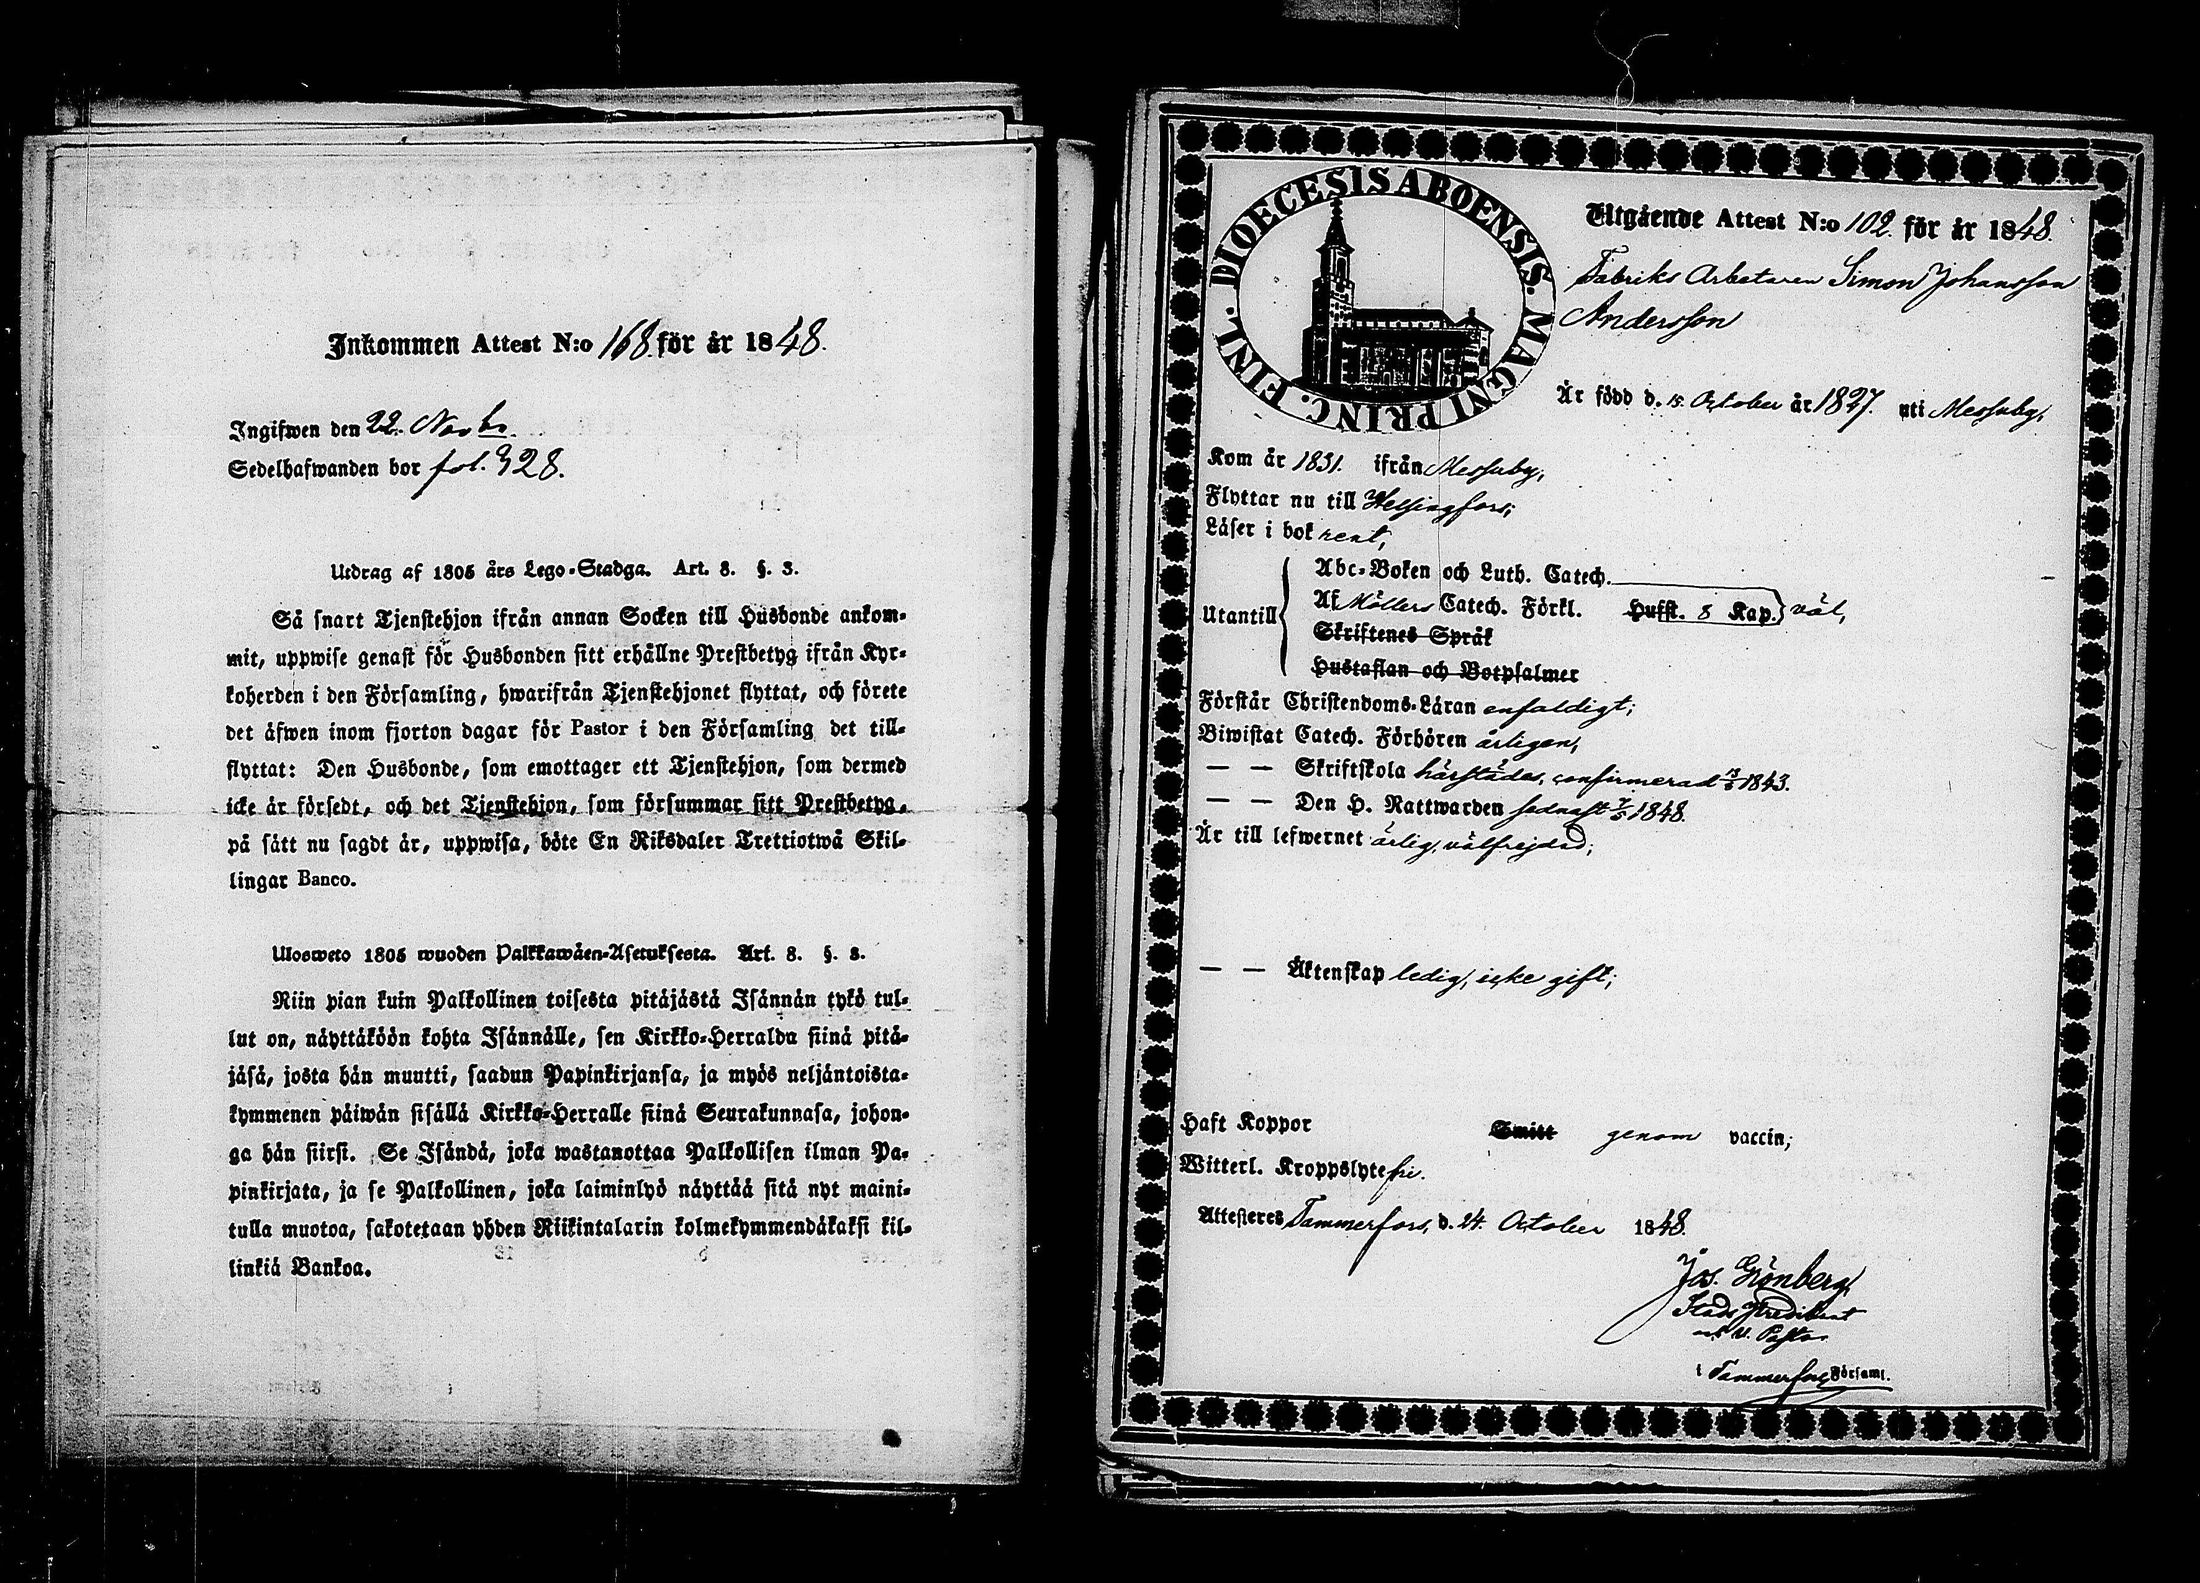 Inkommen Attest N:o 168. för år 1848.
Ingifwen den 22. Novbr.
Sedelhafwanden bor fol. 328.
Utdrag af 1805 års Lego-Stadga. Art. 8. §. 3.
Så snart Tjenstehjon ifrån annan Socken till Husbonde ankom-
mit, uppwise genast för Husbonden sitt erhållne Prestbetyg ifrån Kyr-
koherden i den Församling, hwarifrån Tjenstehjonet flyttat, och förete
det äfwen inom fjorton dagar för Pastor i den Församling det till-
flyttat: Den Husbonde, som emottager ett Tjenstehjon, som dermed
icke är försedt, och det Tjenstehjon, som försummar sitt Prestbetyg,
på sätt nu sagdt är, uppwisa, böte En Riksdaler Trettiotwå Skil-
lingar Banco.
Ulosweto 1805 wuoden Palkkawäen-Asetuksesta. Art. 8. §. 3.
Niin pian kuin Palkollinen toisesta pitäjästä Isännän tykö tul-
lut on, näyttäköön kohta Isännälle, sen Kirkko-Herralda siinä pitä-
jäsä, josta hän muutti, saadun Papinkirjansa, ja myös neljäntoista-
kymmenen päiwän sisällä Kirkko-Herralle siinä Seurakunnasa, johon-
ga hän siirsi. Se Isändä, joka wastanottaa Palkollisen ilman Pa-
pinkirjata, ja se Palkollinen, joka laiminlyö näyttää sitä nyt maini-
tulla muotoa, sakotetaan yhden Riikintalarin kolmekymmendäkaksi kil-
linkiä Bankoa.
DIOECESIS ABOENSIS. MAGNI PRINC. FINL.
Utgående Attest N:o 102. för år 1848.
Fabriks Arbetaren Simon Johansson
Andersson
Är född d. 15. October år 1827. uti Messuby,
Kom år 1831. ifrån Messuby,
Flyttar nu till Helsingfors;
Läser i bok rent,
Abc-Boken och Luth. Catech.
Utantill Af Möllers Catech. Förkl. Hufst. 8 Kap. väl,
Skriftenes Språk
Hustaflan och Botpsalmer
Förstår Christendoms-Läran enfaldigt;
Biwistat Catech. Förhören årligen,
— — Skriftskola härstädes, confirmerad 1843.
— — Den H. Nattwarden sednast 7/5 1848.
Är till lefwernet ärlig, välfrejdad;
— — Äktenskap ledig, icke gift;
Haft Koppor Smitt genom vaccin;
Witterl. Kroppslyte fri.
Attesteres Tammerfors, d. 24. October 1848.
Jos. Grönberg
Stads Predikant
och V. Pastor
i Tammerfors Församl.